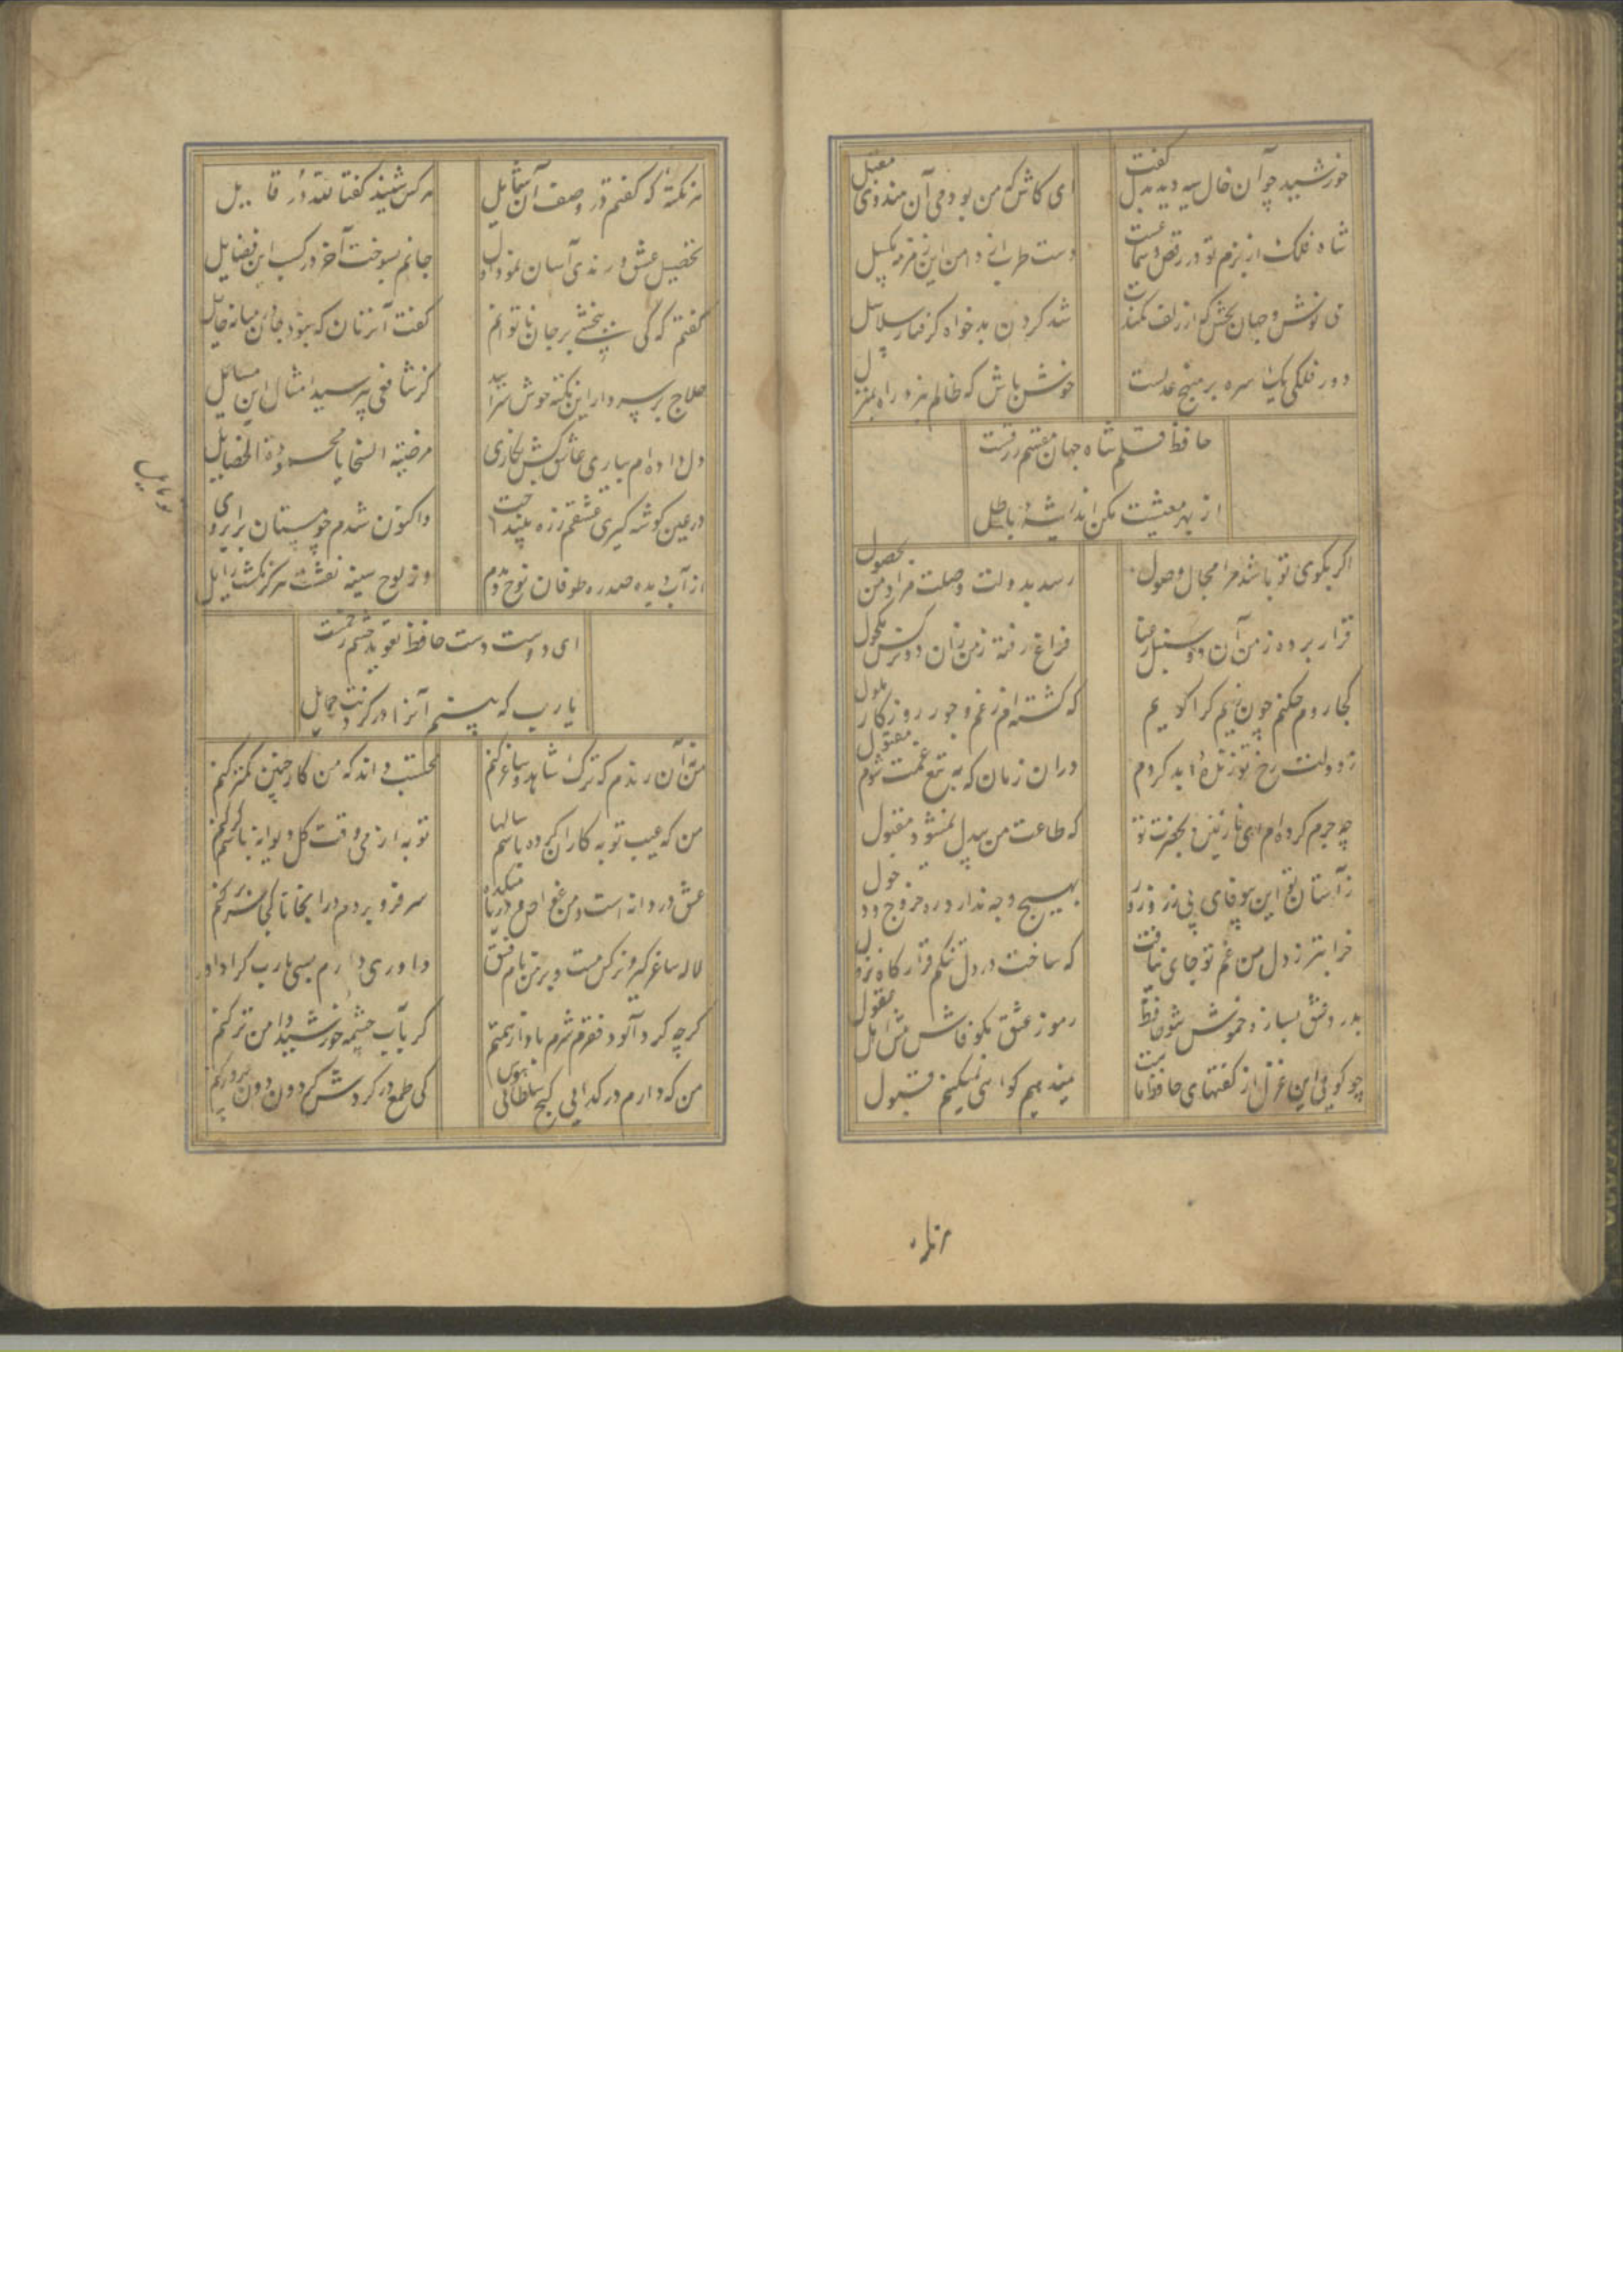 خورشید چو آن خال سیه دید بدل گفت
ای کاش که من بودمی آن هندوی مقبل
شاه فلک از بزم تو در رقص و سماعست
دست طرب از دامن این زمزمه مگسل
می نوش و جهان بخش که از زلف کمندت
شد گردن بدخواه گرفتار سلاسل
دور فلکی یک سره بر منهج عدلست
خوش باش که ظالم نبرد راه بمنزل
حافظ قلم شاه جهان مقسم رزقست
از بهر معیشت مکن اندیشهٔ باطل
اکر بکوی تو باشد مرا مجال وصول
رسد بدولت وصلت مراد من بحصول
قرار برده ز من آن دو سنبل رعنا
فراغ رفته ز من زان دو نرکس مکحول
کجا روم چکنم چون روم کرا کویم
که کشته‌ام ز غم و جور روزکار ملول
دران زمان که به تیغ غمت شوم مقتول
چه جرم کرده‌ام ای نازنین بحضرت تو
که طاعت من بیدل نمیشود مقبول
ز آستان تو این بی‌نوای بی زر و زور
بهیچ وجه ندارد ره خروج و دخول
خرابتر ز دل من غم تو جای نیافت
که ساخت در دل تنکم قرارکاه نزول
بدرد عشق بساز و خموش شو حافظ
رموز عشق مکو فاش پیش اهل عقول
قبول
هر نکتهٔ که کفتم در وصف آن شمایل
هر کس شنید کفتا لله در قایل
تحصیل عشق و رندی آسان نمود اول
جانم بسوخت آخر در کسب این فضایل
کفتم که کی ببخشی بر جان ناتوانم
کفت آنزمان که نبود جان در میانه حایل
حلاج بر سر دار این نکته خوش سراید
کز شافعی نپرسید امثال این مسایل
دل داده‌ام بیاری عاشق کشی نکاری
مرضیة السجایا محمودة الخصایل
در عین کوشه کیری
واکنون شدم
از آب دیده صد ره طوفان نوح دیدم
وز لوح سینه نقشت هرکز نکشت زایل
ای دوست دست حافظ تعویذ چشم زخمست
یا رب که بینم آنرا در کردنت حمایل
من نه آن رندم که ترک شاهد و ساغر کنم
محتسب داند که من کار چنین کمتر کنم
من که عیب توبه کاران کرده باشم سالها
توبه از می وقت کل دیوانه باشم کر کنم
عشق دردانه است و من غواص و دریا میکده
سر فرو بردم در اینجا تا کجا سر بر کنم
لاله ساغر کیر و نرکس مست و بر من نام فسق
داوری دارم بسی یارب کرا داور
کرچه کرد آلود فقرم شرم باد از همتم
کر بآب چشمه خورشید دامن تر کنم
من که دارم در کدایی کنج سلطانی
کی طمع در کردش کردون دون پرور کنم